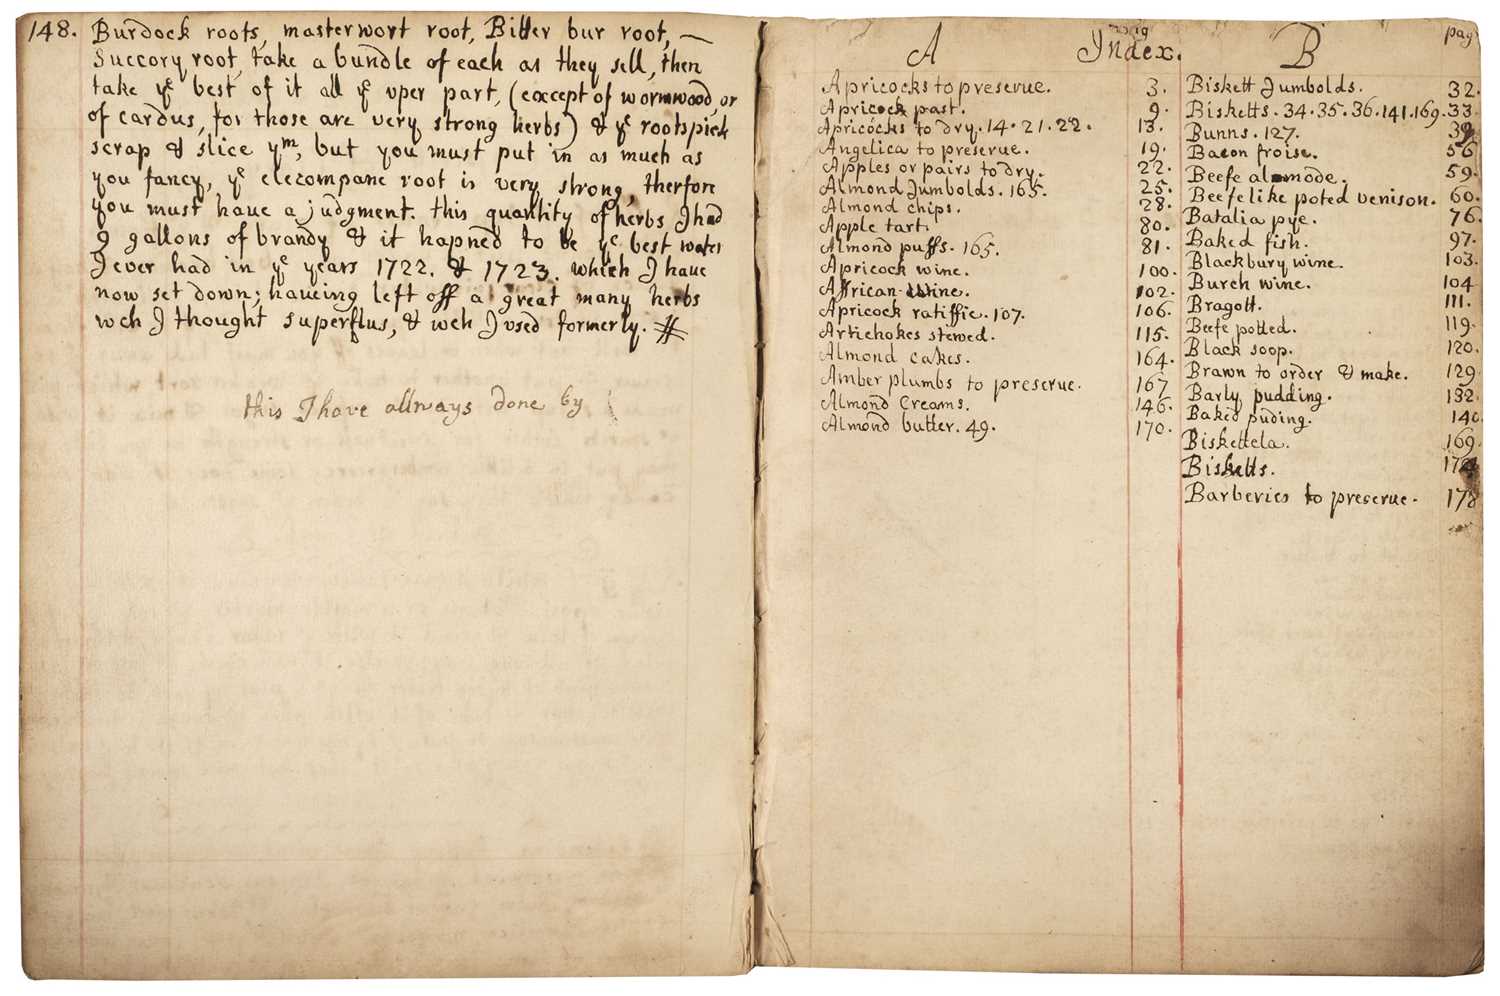 148. Burdock roots, masterwort root, Bitter bur root,
Succory root, take a bundle of each as they sell, then
take ye best of it all ye vper part, (except of wormwood, or
of cardus, for those are very strong herbs) & ye roots pick
scrap & slice ym, but you must put in as much as
you fancy, ye elecompane root is very strong, therfore
you must have a judgment. this quantity of herbs I had
9 gallons of brandy & it hapned to be ye best water
I ever had in ye years 1722. & 1723. which I have
now set down; haueing left off a great many herbs
wch I thought superflus, & wch I vsed formerly.
this I have allways done by
A
Index.
Apricocks to preserue. 3.
Apricock past. 9.
Apricocks to dry. 14. 21. 22. 13.
Angelica to preserue. 19.
Apples or pairs to dry. 22.
Almond Jumbolds. 165. 25.
Almond chips. 28.
Apple tart. 80.
Almond puffs. 165. 81.
Apricock wine. 100.
Affrican wine. 102.
Apricock ratiffie. 107. 106.
Artichokes stewed. 115.
Almond cakes. 164.
Amber plumbs to preserue. 167
Almond Creams. 146.
Almond butter. 49. 170.
B
pag
Biskett Jumbolds. 32.
Bisketts. 34. 35. 36. 141. 169. 33.
Bunns. 127.
Bacon froise. 56
Beefe alamode. 59.
Beefe like poted venison. 60.
Batalia pye. 76
Baked fish. 97.
Blackbury wine. 103.
Burch wine. 104
Bragott. 111.
Beefe potted. 119.
Black soop. 120.
Brawn to order & make. 129
Barly pudding. 132.
Baked puding. 140
Biskettela. 169.
Bisketts.
Barberies to preserue. 178